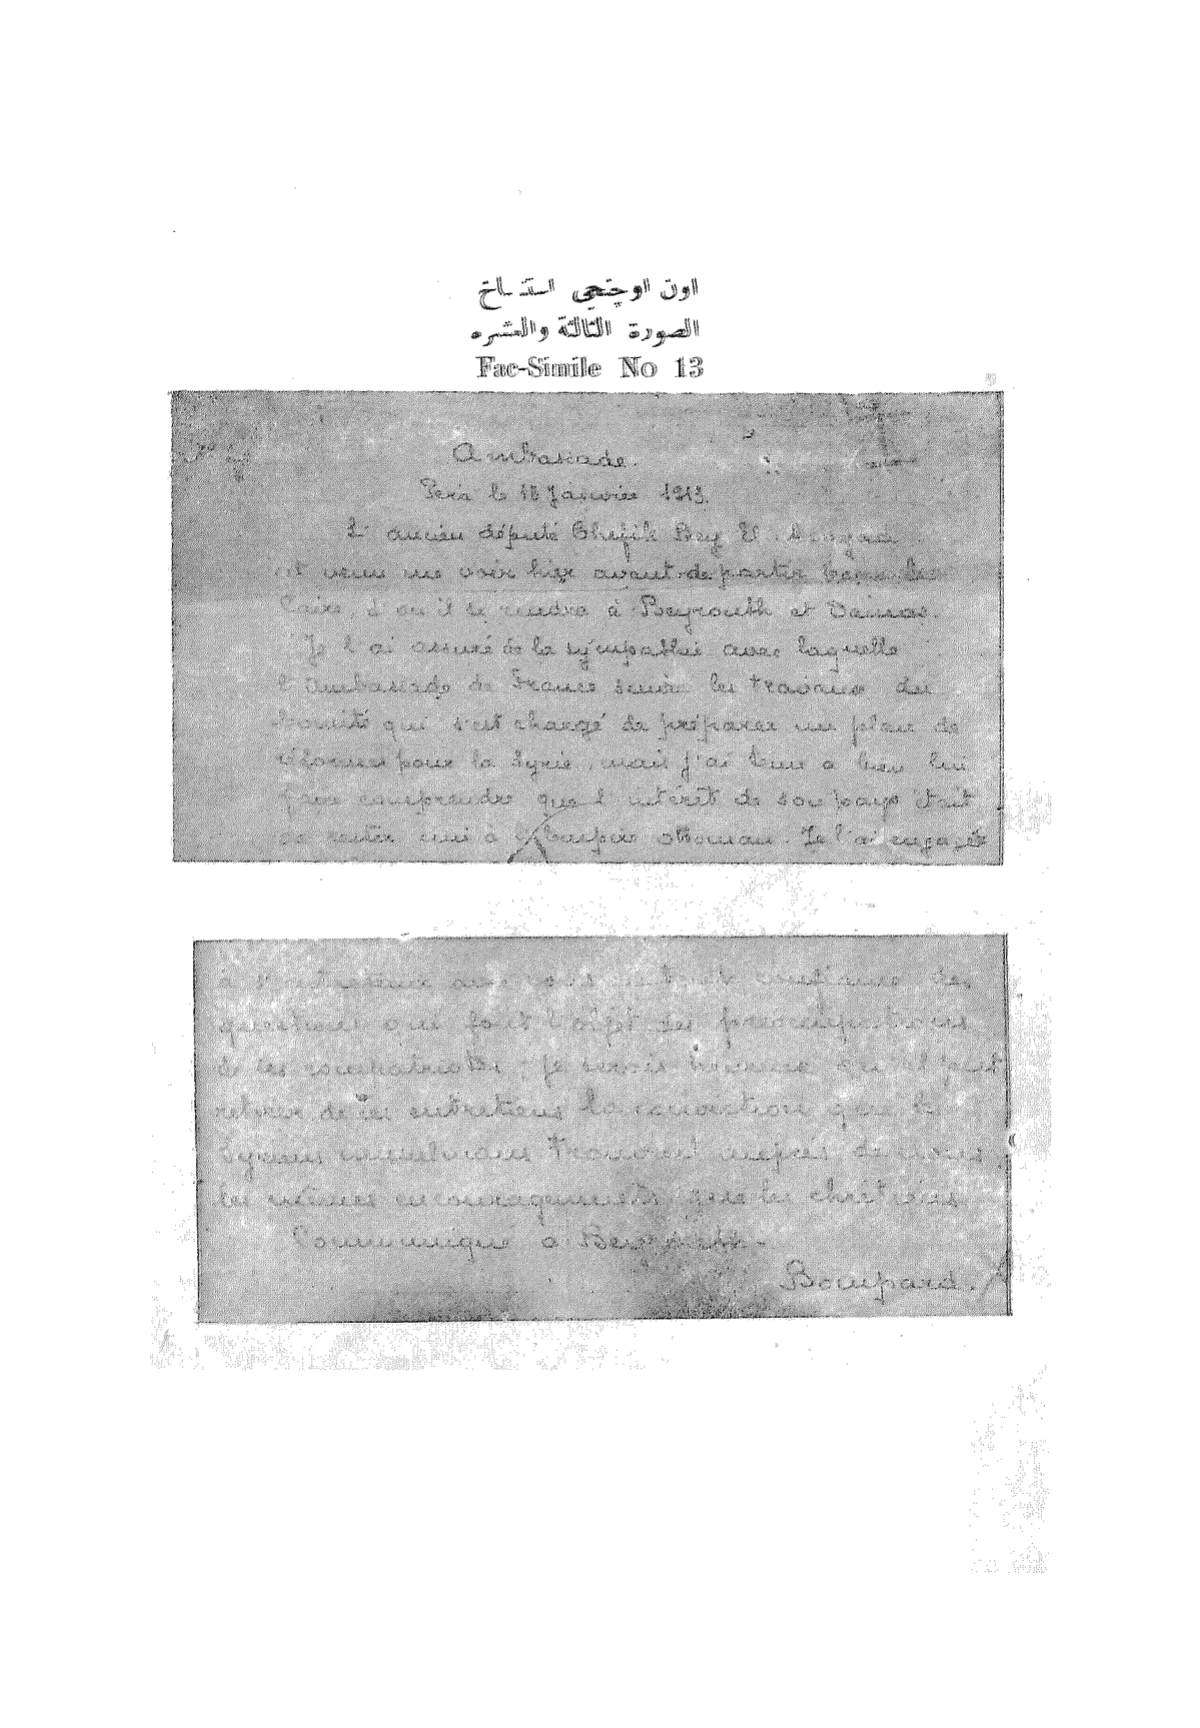 اون اوچنجى استنساخ
الصورة الثالثة والعشره
Fac-Simile No 13
Ambassade.
Péra le 18 Janvier 1913.
L'ancien député Chefik Bey El
est venu me voir hier avant de partir pour le
Caire, d'où il se rendra à Beyrouth et Damas.
Je l'ai assuré de la sympathie avec laquelle
l'Ambassade de France suivra les travaux du
Comité qui s'est chargé de préparer un plan de
réformes pour la Syrie, mais j'ai tenu à bien lui
faire comprendre que l'intérêt de son pays était
de rester uni à l'Empire ottoman. Je l'ai engagé
à s'entretenir avec vous en toute confiance des
questions qui font l'objet des préoccupations
de ses compatriotes ; je serais heureux qu'il pût
retirer de ces entretiens la conviction que les
Syriens musulmans trouvent auprès de nous
les mêmes encouragements que les chrétiens
Communiqué à Beyrouth -
Bompard.